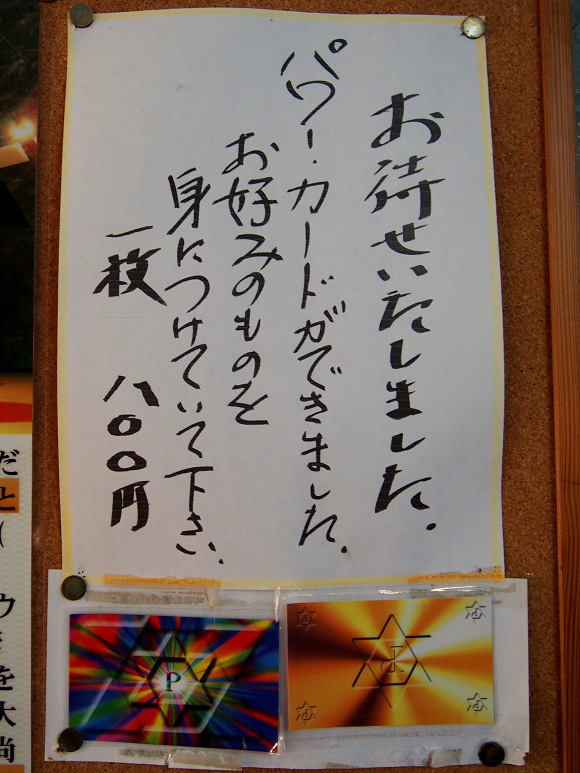 お待せいたしました.
パワー・カードができました.
お好みのものを
身につけていて下さい.
一枚 八〇〇円
P